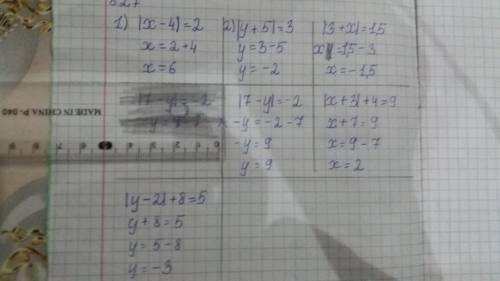 1) |x-4|=2
x=2+4
x=6
2) |y+5|=3
y=3-5
y=-2
|3+x|=1,5
x=1,5-3
x=-1,5
|7-y|=-2
-y=-2-7
-y=9
y=9
|x+3|+4=9
x+7=9
x=9-7
x=2
|y-2|+8=5
y+8=5
y=5-8
y=-3
MADE IN CHINA P-040
0 1 2 3 4 5 6 7 8 9